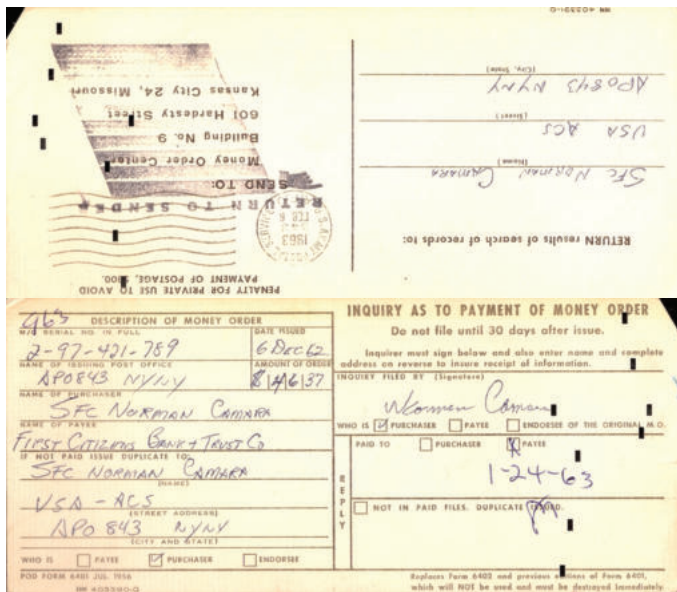 PENALTY FOR PRIVATE USE TO AVOID
PAYMENT OF POSTAGE, $300.
RETURN TO SENDER
SEND TO:
Money Order Center
Building No. 9
601 Hardesty Street
Kansas City 24, Missouri
FEB 6
1963
RETURN results of search of records to:
SFC NORMAN CAMARA
(Name)
USA ACS
(Street)
APO 843 NYNY
(City, State)
963
DESCRIPTION OF MONEY ORDER
SERIAL NO. IN FULL
DATE ISSUED
2-97-421-789
6 DEC 62
NAME OF ISSUING POST OFFICE
AMOUNT OF ORDER
APO 843 NYNY
NAME OF PURCHASER
SFC NORMAN CAMARA
NAME OF PAYEE
FIRST CITIZENS BANK + TRUST CO
IF NOT PAID ISSUE DUPLICATE TO:
SFC NORMAN CAMARA
(NAME)
USA - ACS
(STREET ADDRESS)
APO 843 NYNY
(CITY AND STATE)
WHO IS PAYEE PURCHASER ENDORSEE
POD FORM 6401 JUL 1956
INQUIRY AS TO PAYMENT OF MONEY ORDER
Do not file until 30 days after issue.
Inquirer must sign below and also enter name and complete
address on reverse to insure receipt of information.
INQUIRY FILED BY (Signature)
Norman Camara
WHO IS PURCHASER PAYEE ENDORSEE OF THE ORIGINAL M.O.
REPLY
PAID TO PURCHASER PAYEE
1-24-63
NOT IN PAID FILES. DUPLICATE ISSUED.
Replaces Form 6402 and previous editions of Form 6401,
which will NOT be used and must be destroyed immediately.